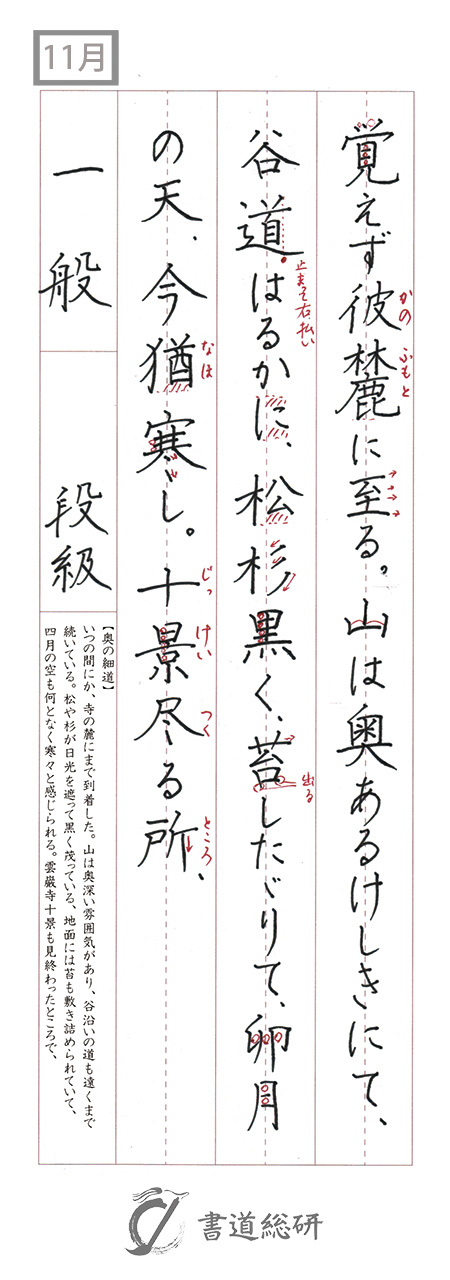 11月
覚えず彼麓に至る。山は奥あるけしきにて、
かの
ふもと
谷道はるかに、松杉黒く、苔しただりて、卯月
止まって右払い
出る
の天、今猶寒し。十景尽る所、
なほ
じっ
けい
つく
ところ
一般
段級
【奥の細道】
いつの間にか、寺の麓にまで到着した。山は奥深い雰囲気があり、谷沿いの道も遠くまで
続いている。松や杉が日光を遮って黒く茂っている、地面には苔も敷き詰められていて、
四月の空も何となく寒々と感じられる。雲巌寺十景も見終わったところで、
書道総研